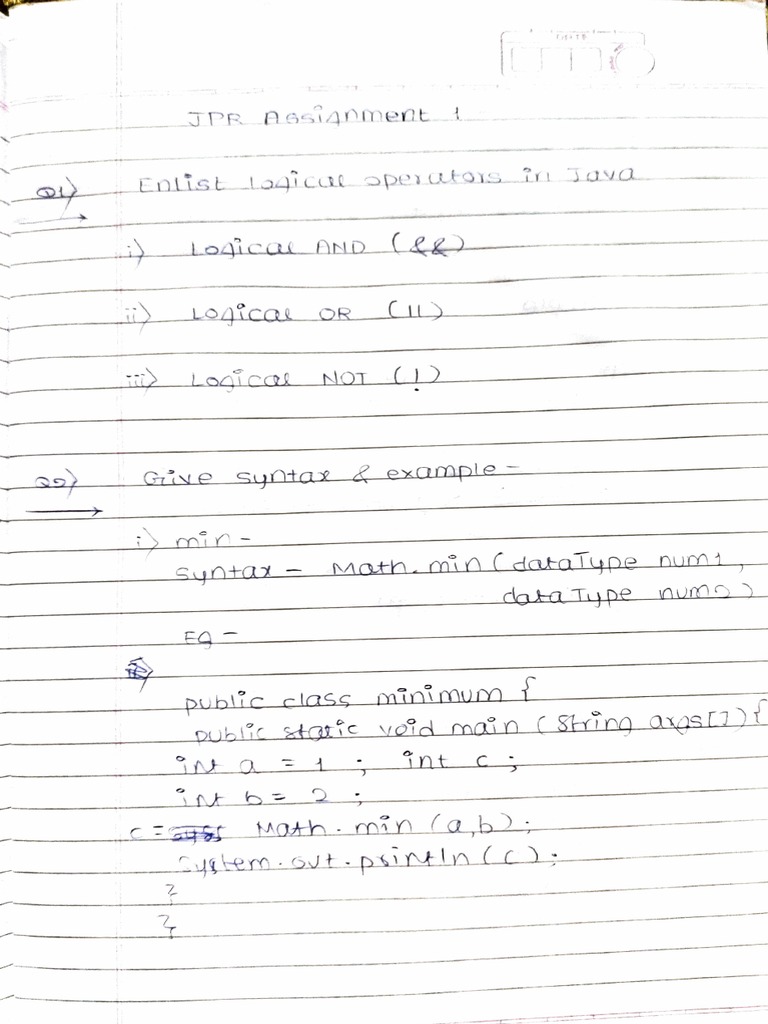 JPR Assignment 1
Q1) Enlist logical operators in Java
i) Logical AND (&&)
ii) Logical OR (||)
iii) Logical NOT (!)
Q2) Give syntax & example -
i) min -
syntax - Math.min (dataType num1,
dataType num2)
EG -
public class minimum {
public static void main (String args[]) {
int a = 1 ; int c ;
int b = 2 ;
c = Math.min (a,b);
System.out.println (c);
}
}